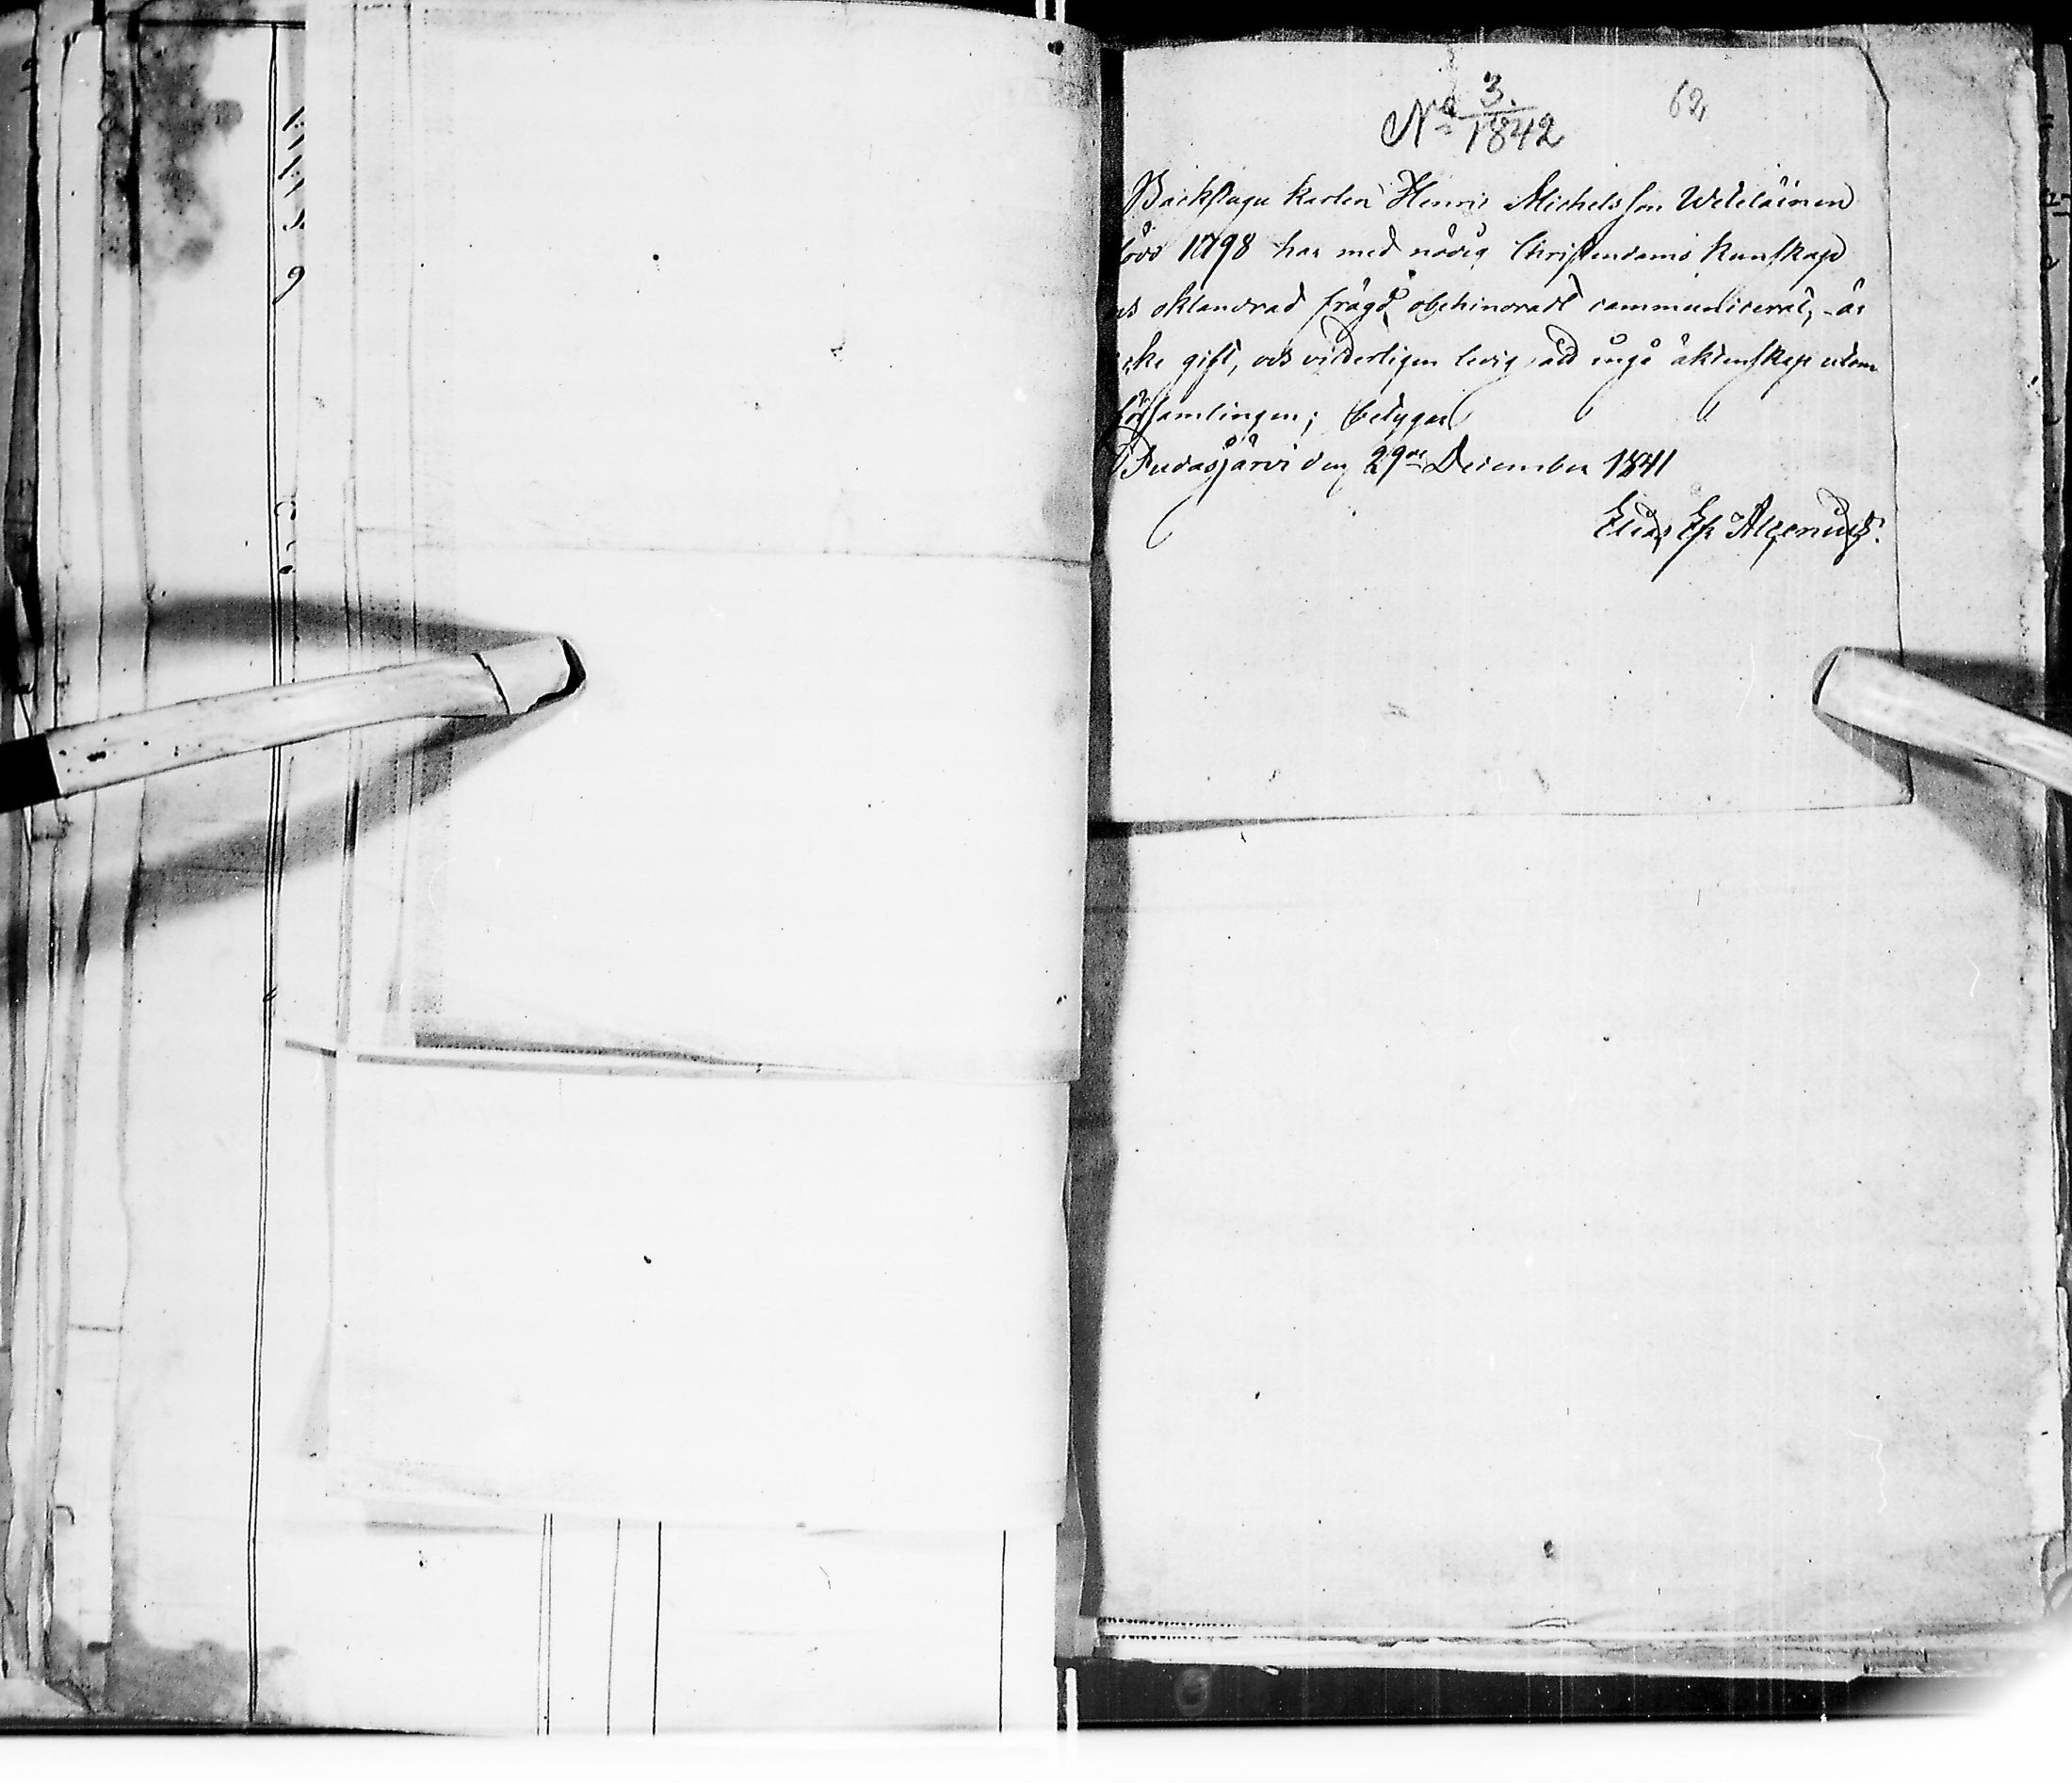 62
No 3./1842
Backstugu Karlen Henric Michelsson Weteläinen
född 1798 har med nödig Christendoms Kunskap
och oklandrad frägd, obehindradt communicerat, är
icke gift, och vitterligen ledig att ingå äktenskap utom
församlingen; betygar
Pudasjärvi den 29de December 1841
Elias